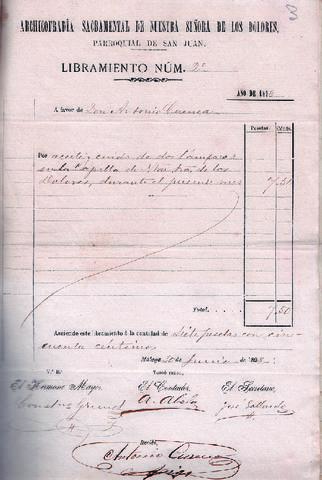 ARCHICOFRADÍA SACRAMENTAL DE NUESTRA SEÑORA DE LOS DOLORES,
PARROQUIAL DE SAN JUAN.
LIBRAMIENTO NÚM. 2º
AÑO DE 18
A favor de Don Antonio Cuenca
Pesetas. Cénts.
Por aceite y cuido de dos lámparas
en la Capilla de Ntra Sra de los
Dolores, durante el presente mes 7,50
Total. 7,50
Asciende este libramiento á la cantidad de Siete pesetas con cin-
cuenta céntimos
Málaga 30 de Junio de 188
V.º B.º Tomé razon.
El Hermano Mayor, El Contador, El Secretario,
A. José Gallardo
Recibí,
Antonio Cuenca